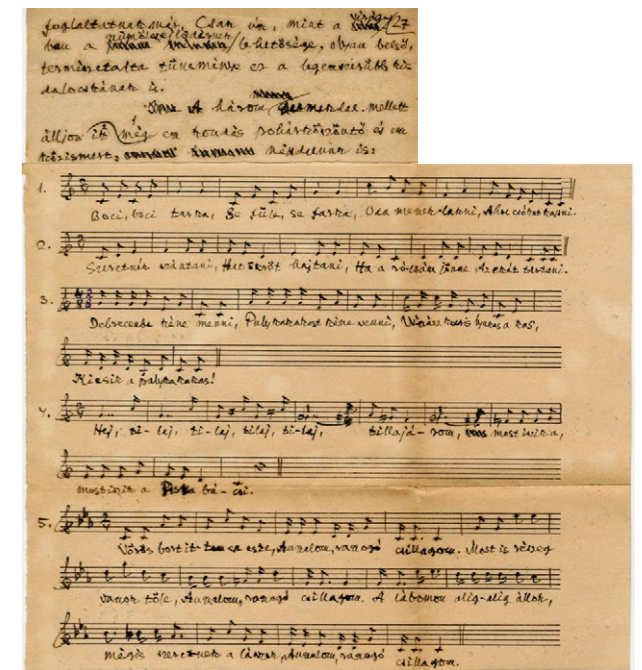 foglaltatnak már. Csak úgy, mint a virág- /27
ban a gyümölcsfejlődésnek lehetősége, olyan belső,
természetadta tüneménye ez a legegyszerűbb kis
dalocskának is.
A három gyermekdal mellett
álljon itt még egy kondás pohárköszöntő és egy
közismert, népdalunk is:
1.
Boci, boci tarka, Se füle, se farka, Oda menek lakni, Ahol csókot kapni.
2.
Szeretnék szántani, Hat ökröt hajtani, Ha a rózsám jönne Az ekét tartani.
3.
Debrecenbe kéne menni, Pulykakakast kéne venni, kocsis lyukas a kas,
Kiesik a pulykakakas!
4.
Hej, ti-laj, ti-laj, tilaj, ti-laj, tillajá-rom, most iszik a,
most iszik a Pista bá-csi.
5.
Vörös bort ittam az este, Annalom, ragyogó csillagom. Most is részeg
vagyok tőle, Annalom, ragyogó csillagom. A lábomon alig-alig állok,
mégis szeretnek a lányok, Annalom, ragyogó csillagom.